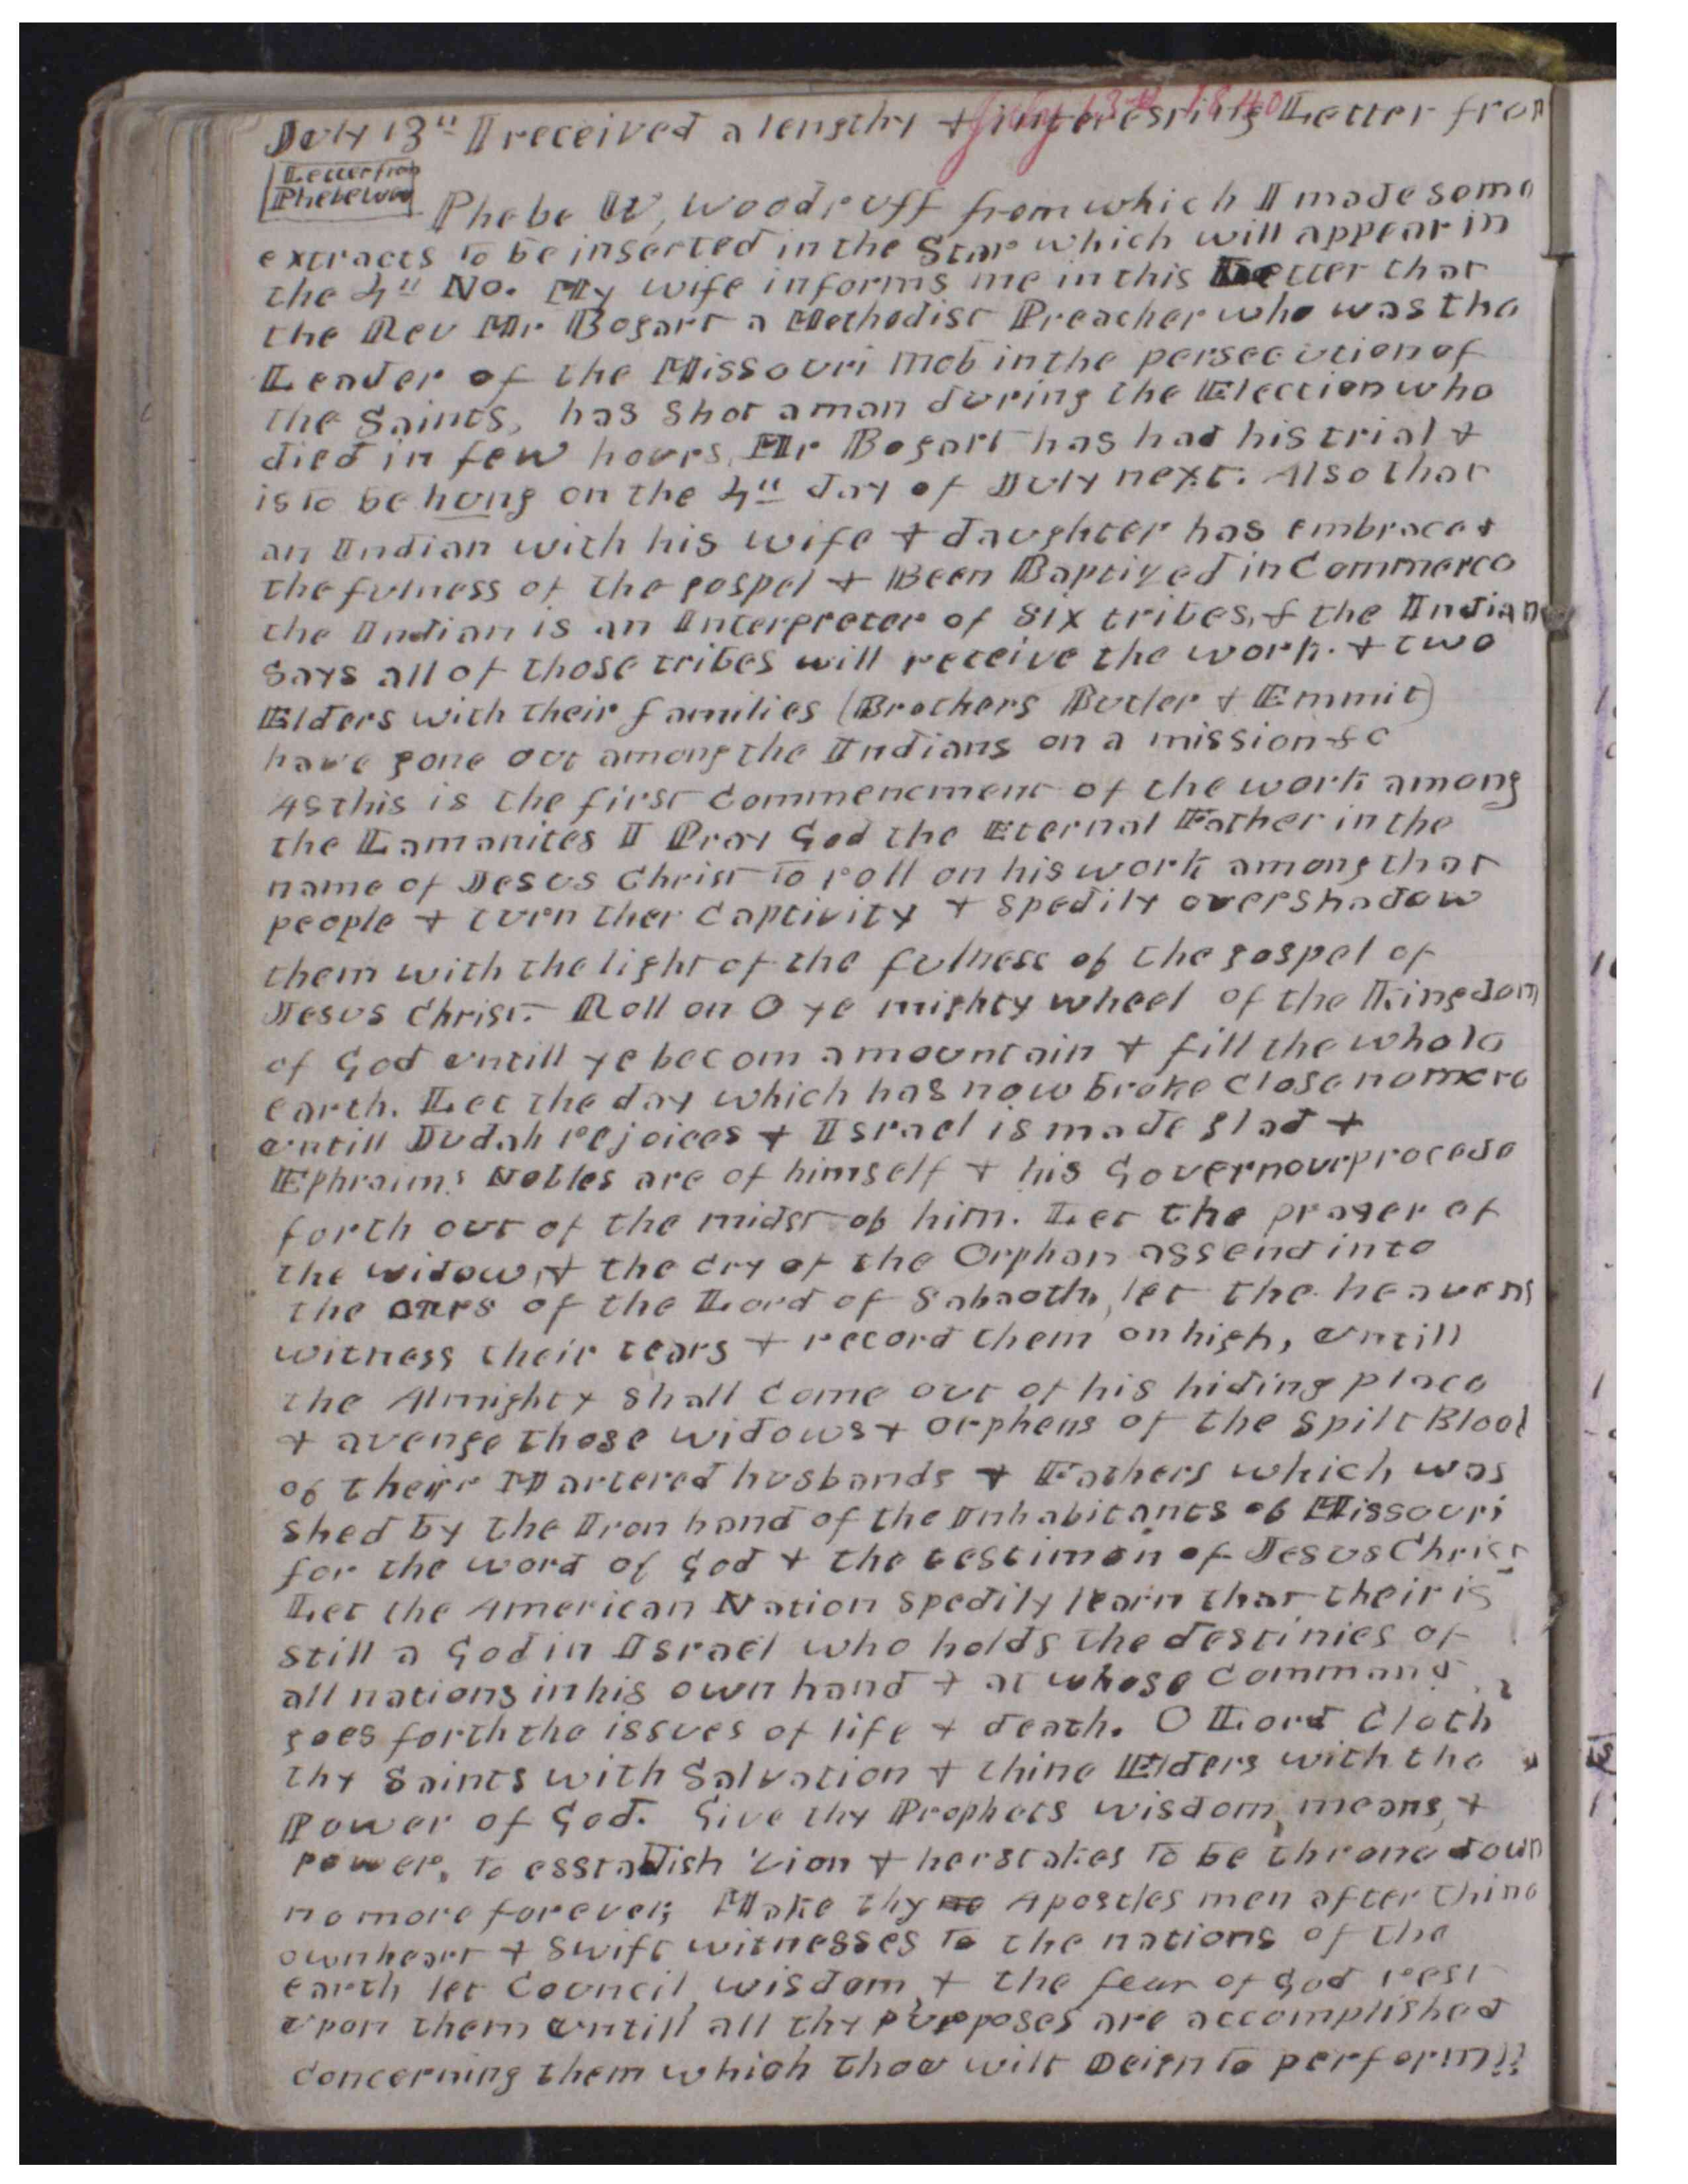 July 13th 1840
July 13" I received a lengthy & interesting Letter from
Letter from
Phebe W
Phebe W, Woodruff from which I made some
extracts to be inserted in the Star which will appear in
the 4" No. My wife informs me in this Letter that
the Rev Mr Bogart a Methodist Preacher who was the
Leader of the Missouri mob in the persecution of
the Saints, has shot a man during the Election who
died in few hours, Mr Bogart has had his trial &
is to be hung on the 4" day of July next. Also that
an Indian with his wife & daughter has embraced
the fulness of the gospel & Been Baptized in Commerce
the Indian is an Interpreter of six tribes, & the Indian
says all of those tribes will receive the work. & two
Elders with their families (Brothers Butler & Emmit)
have gone out among the Indians on a mission &c
As this is the first Commencment of the work among
the Lamanites I Pray God the Eternal Father in the
name of Jesus Christ to roll on his work among that
people & turn ther Captivity & spedily overshadow
them with the light of the fulness of the gospel of
Jesus Christ. Roll on O ye mighty wheel of the Kingdom
of God untill ye becom a mountain & fill the whole
earth. Let the day which has now broke close no more
untill Judah rejoices & Israel is made glad &
Ephraims Nobles are of himself & his Governour procede
forth out of the midst of him. Let the prayer of
the widow, & the cry of the Orphan assend into
the ears of the Lord of Sabaoth, let the heavens
witness their tears & record them on high, untill
the Almighty shall Come out of his hiding place
& avenge those widows & orphens of the spilt Blood
of their Martered husbands & Fathers which was
shed by the Iron hand of the Inhabitants of Missouri
for the word of God & the testimon of Jesus Christ
Let the American Nation spedily learn that their is
still a God in Israel who holds the destinies of
all nations in his own hand & at whose Command
goes forth the issues of life & death. O Lord Cloth
thy Saints with Salvation & thine Elders with the
Power of God. Give thy Prophets wisdom, means, &
power, to esstablish Zion & her stakes to be throne down
no more forever; Make thy Apostles men after thine
own heart & swift witnesses to the nations of the
earth let Council, wisdom, & the fear of God rest
upon them untill all thy purposes are accomplished
concerning them which thou wilt Deign to perform!!